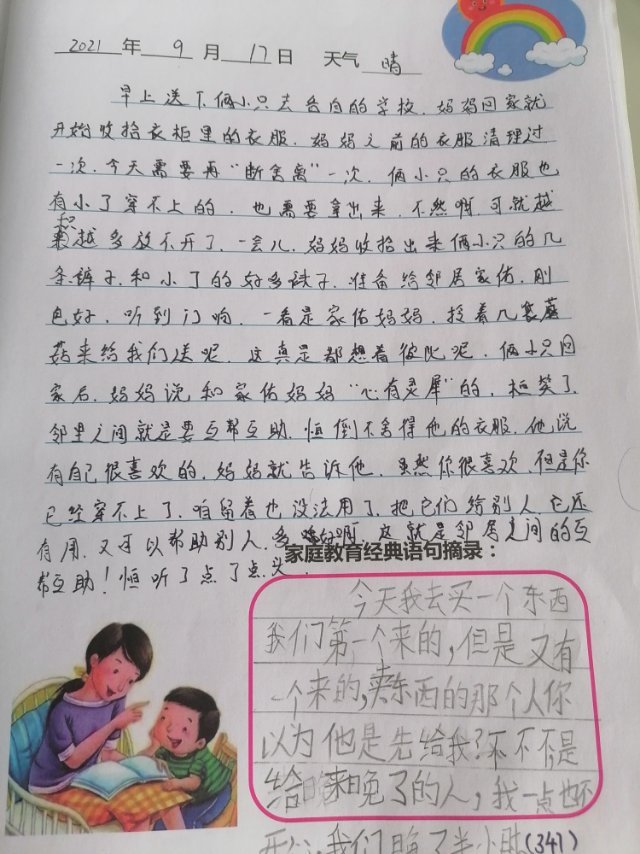 2021 年 9 月 17 日 天气 晴
早上送下俩小只去各自的学校，妈妈回家就
开始收拾衣柜里的衣服，妈妈之前的衣服清理过
一次，今天需要再“断舍离”一次，俩小只的衣服也
有小了穿不上的，也需要拿出来，不然啊，可就越
积越多放不开了，一会儿，妈妈收拾出来俩小只的几
条裤子，和小了的好多袜子，准备给邻居家佑，刚
包好，听到门响，一看是家佑妈妈，拎着几袋蘑
菇来给我们送呢，这真是都想着彼此呢，俩小只回
家后，妈妈说和家佑妈妈“心有灵犀”的，桓笑了，
邻里之间就是要互帮互助，恒倒不舍得他的衣服，他说
有自己很喜欢的，妈妈就告诉他，虽然你很喜欢，但是你
已经穿不上了，咱留着也没法用了，把它们给别人，它还
有用，又可以帮助别人，多好啊，这就是邻居之间的互
帮互助！恒听了点了点头。
家庭教育经典语句摘录：
今天我去买一个东西
我们第一个来的，但是又有
一个来的，卖东西的那个人你
以为他是先给我？不不不，是
给来晚了的人，我一点也不
开心，我们晚了半小时(341)